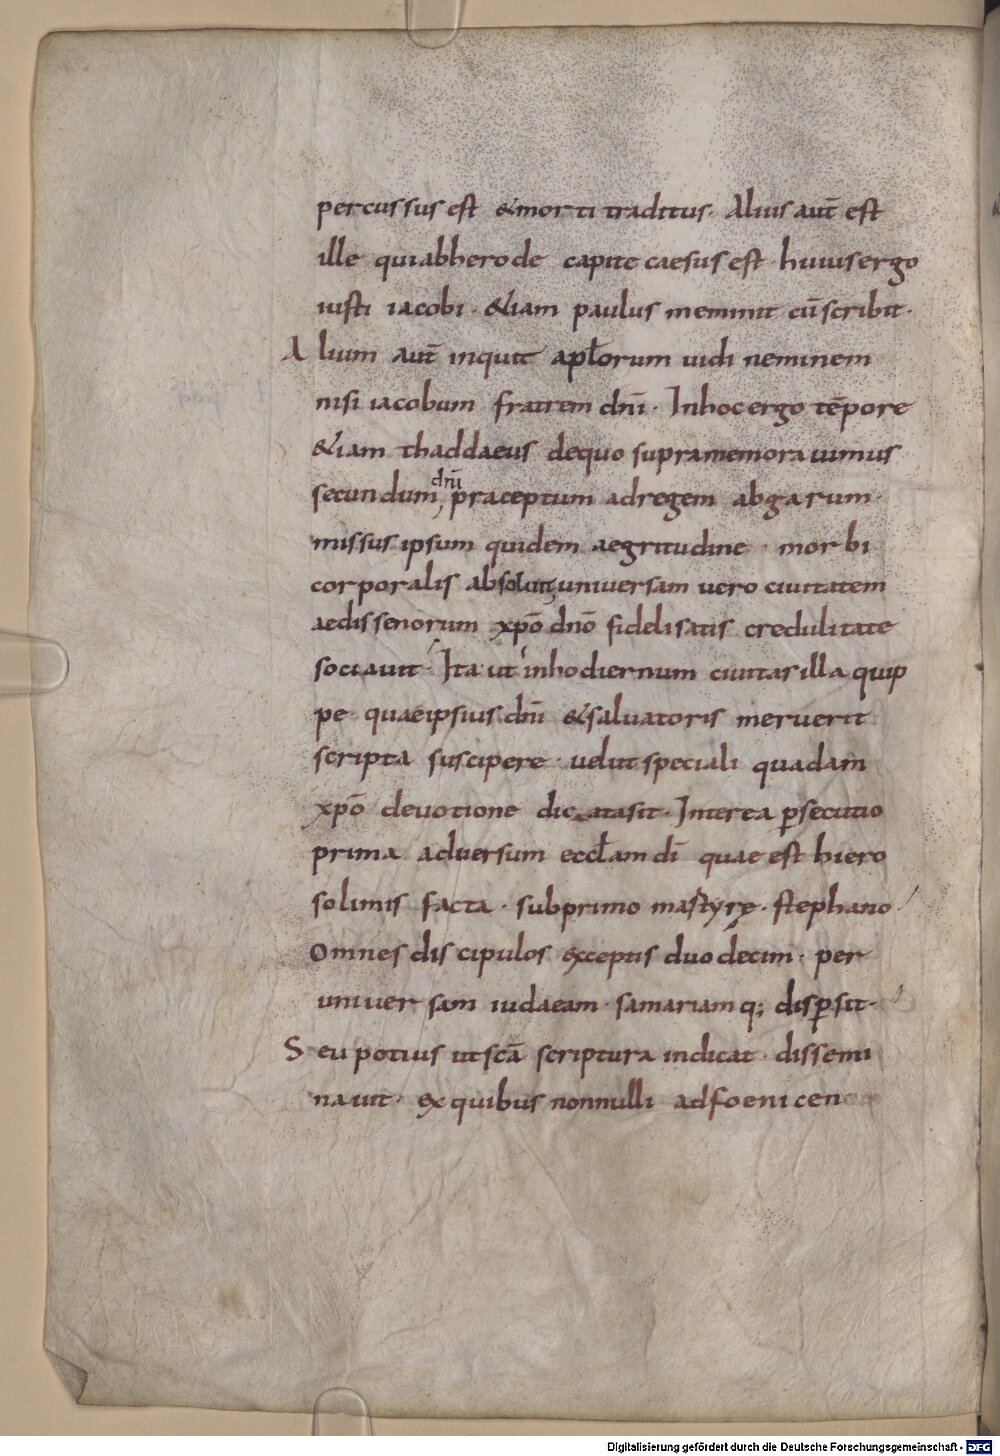 percussus est & morti traditus· Alius aut̄ est
ille qui abherode capite caesus est· huius ergo
iusti iacobi· &iam paulus meminit cū scribit·
Alium aut̄ inquit apƚorum uidi neminem
nisi iacobum fratrem dn̄i· Inhoc ergo tēpore
&iam thaddaeus dequo supra memorauimus
secundum dn̄i praeceptum adregem abgarum·
missus ipsum quidem aegritudine morbi
corporalis absoluit, universam vero ciuitatem
aedissenorum xp̄o dn̄o fidelis satis credulitate
sociauit· Ita ut inhodiernum ciuitas illa quip
pe quae ipsius dn̄i & saluatoris meruerit
scripta suscipere· uelut speciali quadam
xp̄o devotione dicatasit· Interea ꝑsecutio
prima adversum eccƚam dī quae est hiero
solimis facta· sub primo martyrę· stephano
Omnes discipulos exceptis duodecim· per
universam iudaeam· samariamq; disꝑsit·
Seu potius ut scā scriptura indicat· dissemi
nauit· ex quibus nonnulli adfoenicen
Digitalisierung gefördert durch die Deutsche Forschungsgemeinschaft - DFG